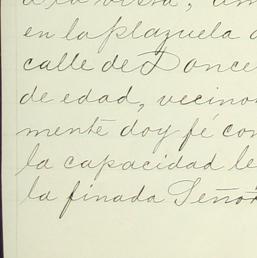 en la plazuela
calle de Donce
de edad, vecino
mente doy fé con
la capacidad le
la finada Seño